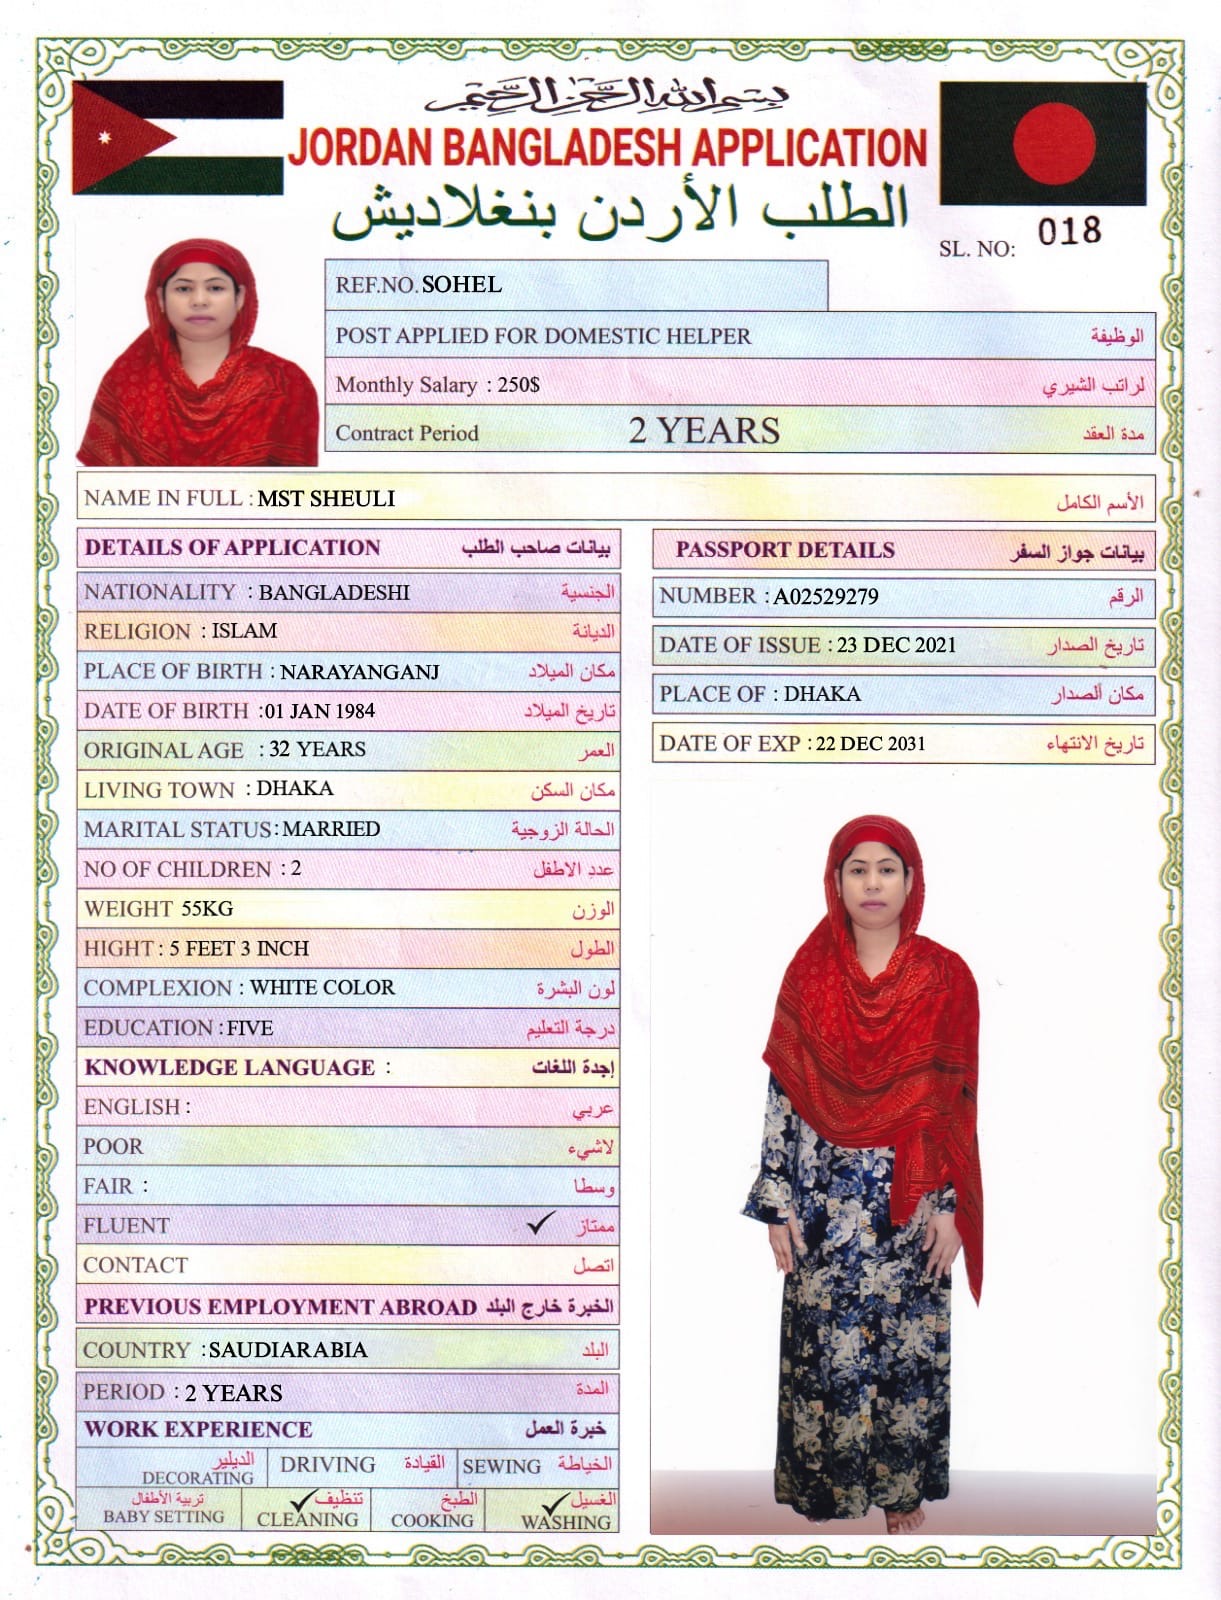 بسم الله الرحمن الرحيم
JORDAN BANGLADESH APPLICATION
الطلب الأردن بنغلاديش
SL. NO: 018
REF.NO. SOHEL
POST APPLIED FOR DOMESTIC HELPER الوظيفة
Monthly Salary : 250$ لراتب الشيري
Contract Period 2 YEARS مدة العقد
NAME IN FULL : MST SHEULI الأسم الكامل
DETAILS OF APPLICATION بيانات صاحب الطلب
NATIONALITY : BANGLADESHI الجنسية
RELIGION : ISLAM الديانة
PLACE OF BIRTH : NARAYANGANJ مكان الميلاد
DATE OF BIRTH :01 JAN 1984 تاريخ الميلاد
ORIGINAL AGE : 32 YEARS العمر
LIVING TOWN : DHAKA مكان السكن
MARITAL STATUS: MARRIED الحالة الزوجية
NO OF CHILDREN : 2 عدد الاطفل
WEIGHT 55KG الوزن
HIGHT : 5 FEET 3 INCH الطول
COMPLEXION : WHITE COLOR لون البشرة
EDUCATION : FIVE درجة التعليم
KNOWLEDGE LANGUAGE : إجدة اللغات
ENGLISH : عربي
POOR لاشيء
FAIR : وسطا
FLUENT ✓ ممتاز
CONTACT اتصل
PREVIOUS EMPLOYMENT ABROAD الخبرة خارج البلد
COUNTRY : SAUDIARABIA البلد
PERIOD : 2 YEARS المدة
WORK EXPERIENCE خبرة العمل
الديلير DECORATING
DRIVING القيادة
SEWING الخياطة
تربية الأطفال BABY SETTING
✓ تنظيف CLEANING
الطبخ COOKING
✓ الغسيل WASHING
PASSPORT DETAILS بيانات جواز السفر
NUMBER : A02529279 الرقم
DATE OF ISSUE : 23 DEC 2021 تاريخ الصدار
PLACE OF : DHAKA مكان الصدار
DATE OF EXP : 22 DEC 2031 تاريخ الانتهاء